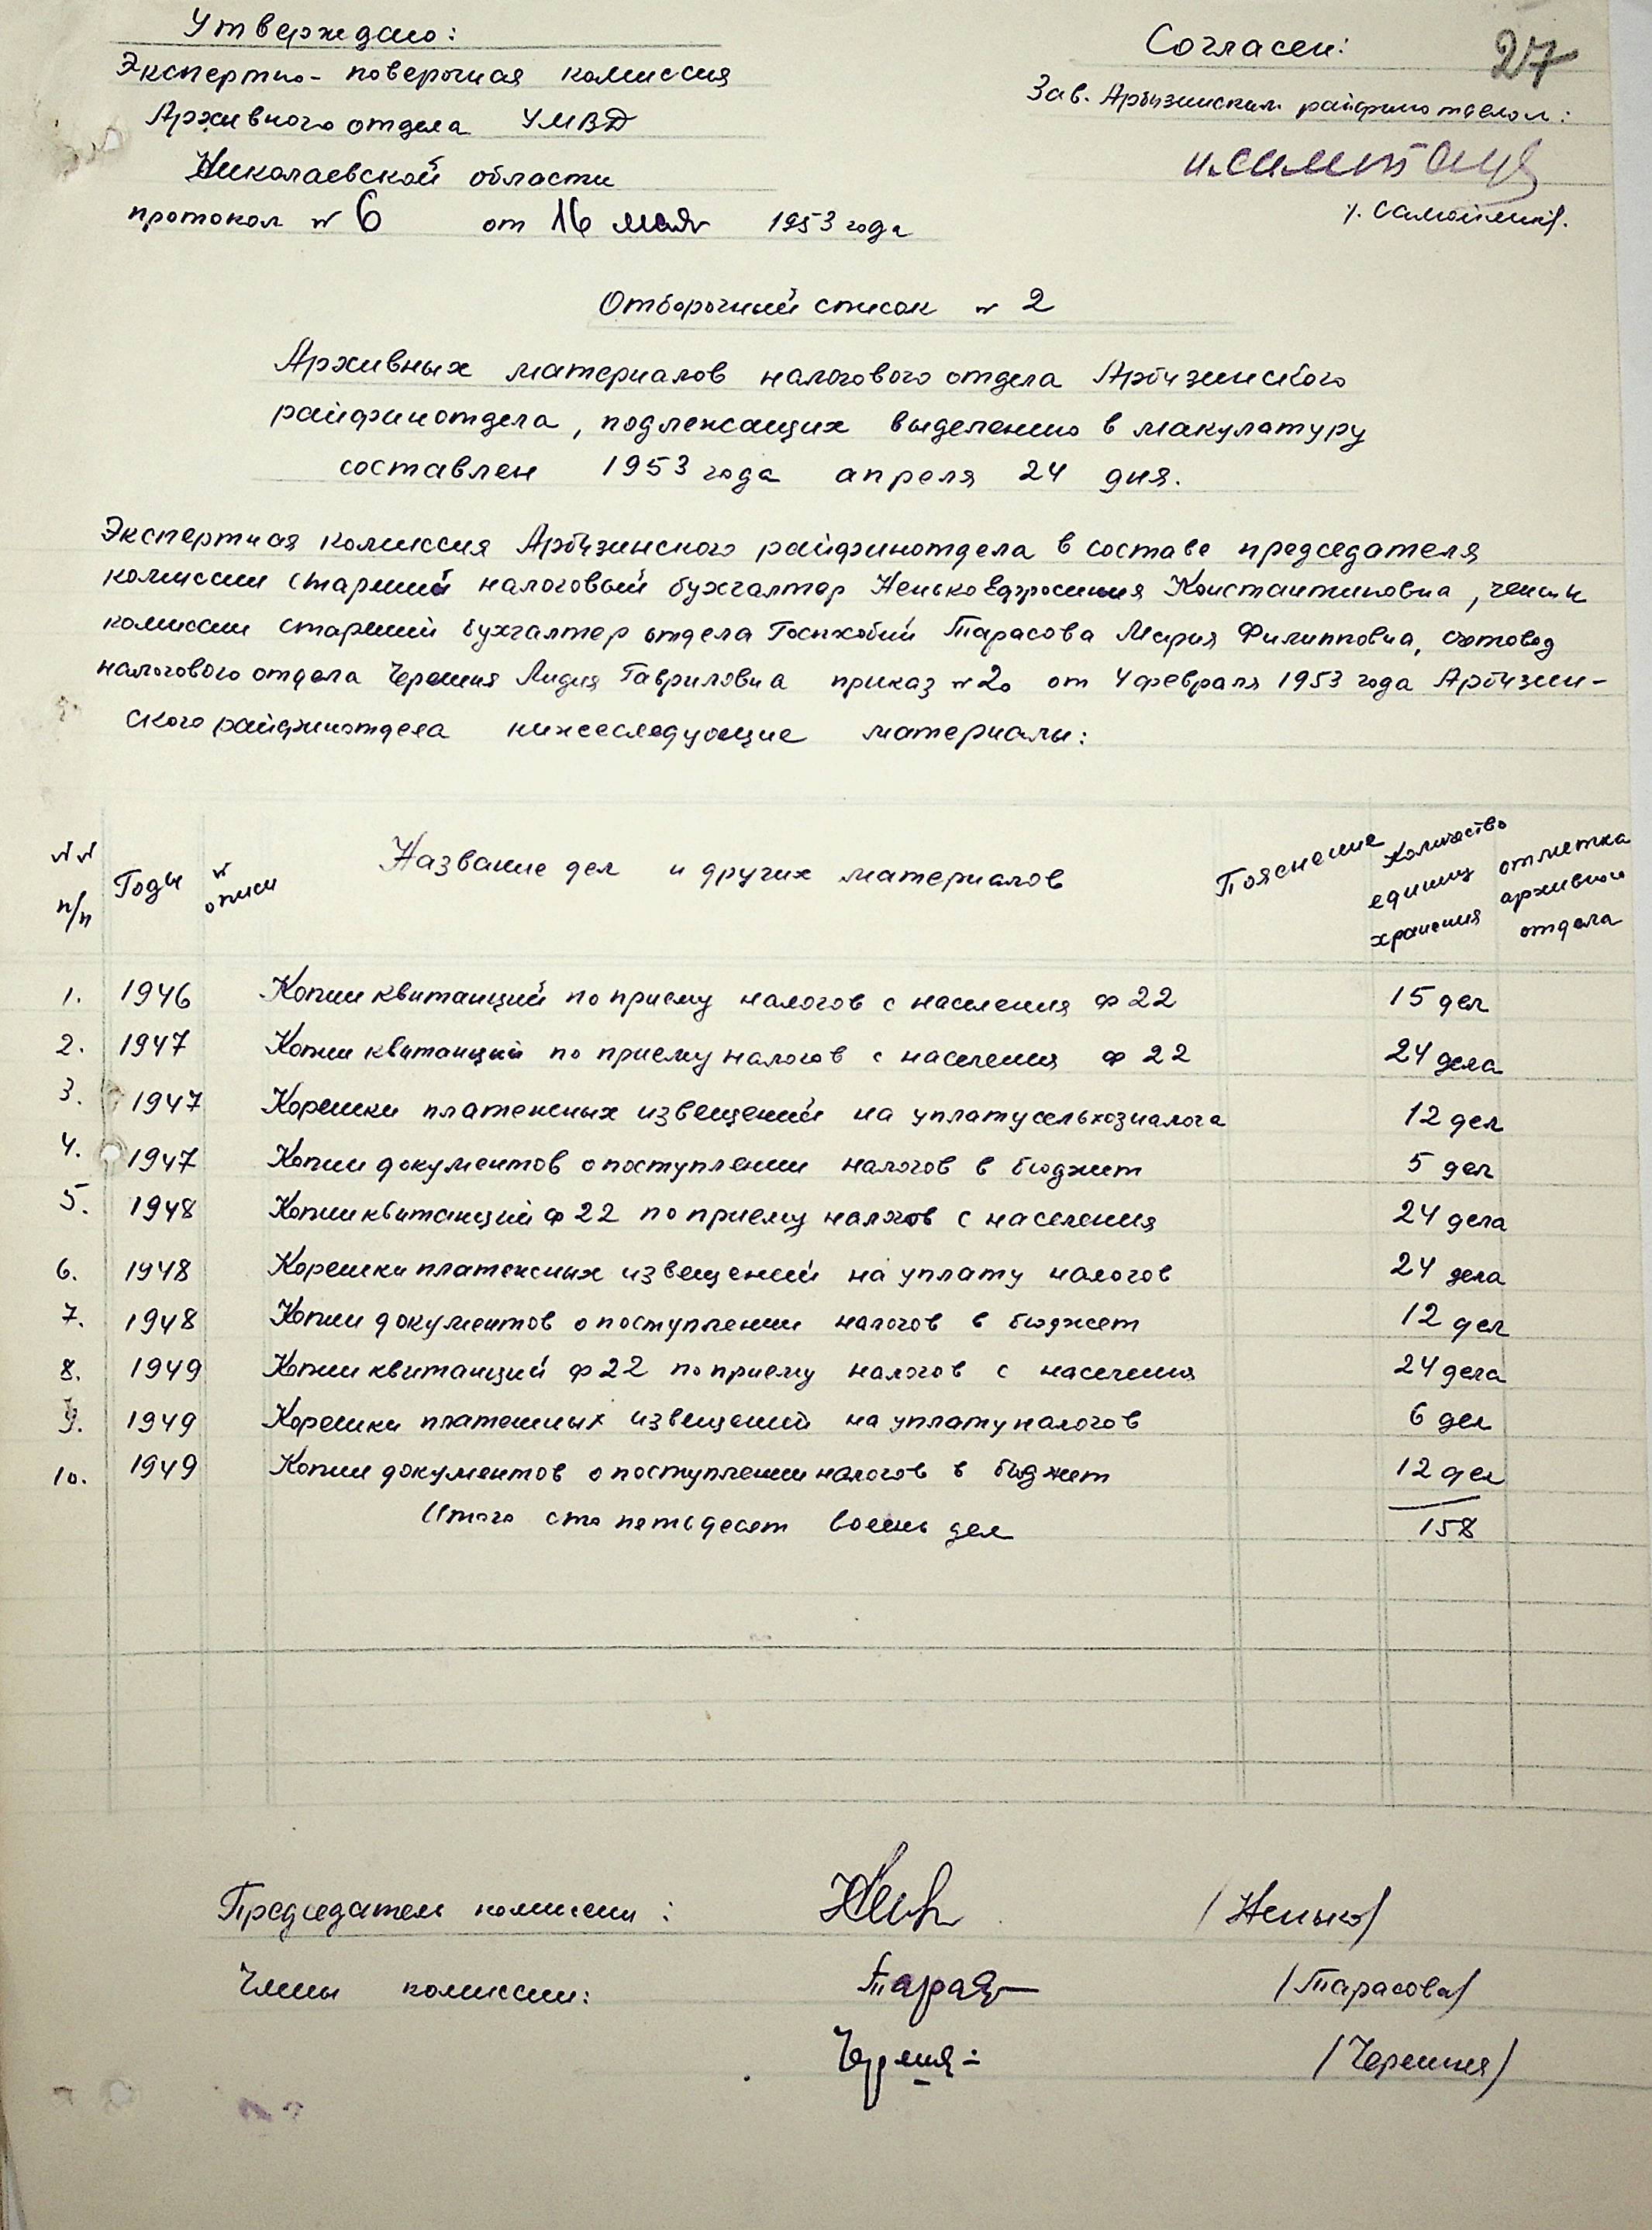 Утверждаю:
Экспертно-поверочная комиссия
Архивного отдела УМВД
Николаевской области
протокол № 6 от 16 мая 1953 года
Согласен:
27
Зав. Арбузинским райфинотделом:
Отборочний список № 2
Архивных материалов налогового отдела Арбузинского
райфинотдела, подлежащих выделению в макулатуру
составлен 1953 года апреля 24 дня.
Экспертная комиссия Арбузинского райфинотдела в составе председателя
комиссии старший налоговый бухгалтер Ненько Ефросиния Константиновна, члены
комиссии старший бухгалтер отдела Тарасова Мария Филипповна, счетовод
налогового отдела Черешня Лидия Гавриловна приказ № 20 от 4 февраля 1953 года Арбузин-
ского райфинотдела нижеследующие материалы:
№№ п/п Годы № описи Название дел и других материалов Пояснение Количество единиц хранения отметка архивного отдела
1. 1946 Копии квитанций по приему налогов с населения ф 22 15 дел
2. 1947 Копии квитанций по приему налогов с населения ф 22 24 дела
3. 1947 Корешки платежных извещений на уплату сельхозналога 12 дел
4. 1947 Копии документов о поступлении налогов в бюджет 5 дел
5. 1948 Копии квитанций ф 22 по приему налогов с населения 24 дела
6. 1948 Корешки платежных извещений на уплату налогов 24 дела
7. 1948 Копии документов о поступлении налогов в бюджет 12 дел
8. 1949 Копии квитанций ф 22 по приему налогов с населения 24 дела
9. 1949 Корешки платежных извещений на уплату налогов 6 дел
10. 1949 Копии документов о поступлении налогов в бюджет 12 дел
Итого сто петьдесят восемь дел 158
Председатель комиссии: (Ненько)
Члены комиссии: (Тарасова)
(Черешня)